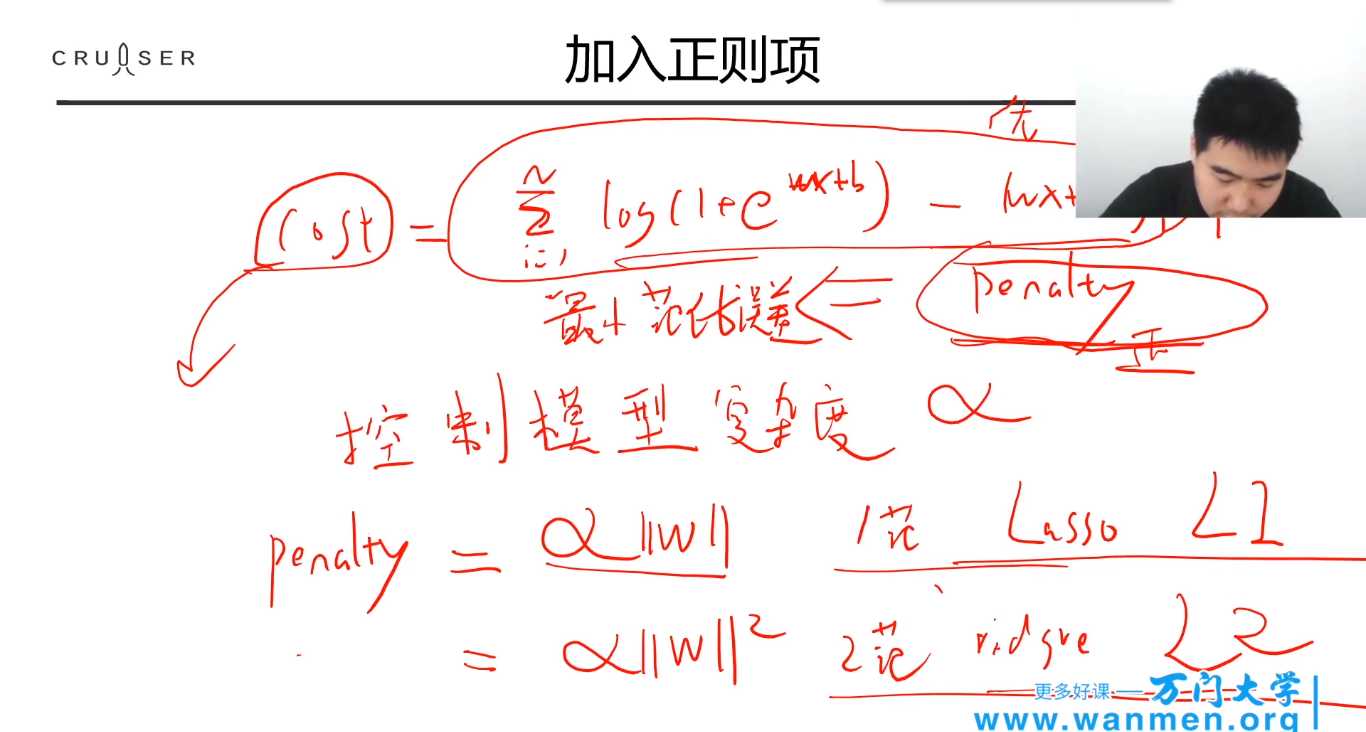 CRUISER
加入正则项
优
cost = N Σ i=1 log(1+e^wx+b) - (wx+
最小范化误差 <= penalty
正
控制模型复杂度 α
penalty = α||w|| 1范 Lasso L1
= α||w||² 2范 ridgre L2
更多好课 — 万门大学
www.wanmen.org